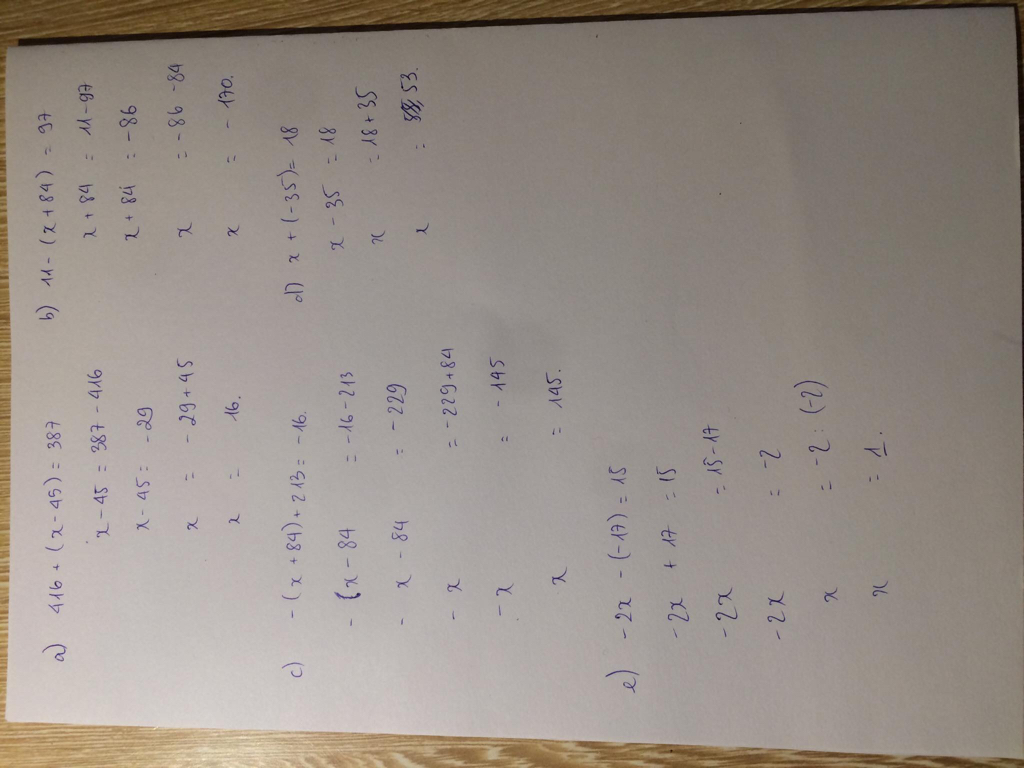 a) 416 + (x - 45) = 387
x - 45 = 387 - 416
x - 45 = -29
x = - 29 + 45
x = 16.
b) 11 - (x + 84) = 97
x + 84 = 11 - 97
x + 84 = - 86
x = - 86 - 84
x = - 170.
c) - (x + 84) + 213 = -16.
- x - 84 = -16 - 213
- x - 84 = - 229
- x = - 229 + 84
- x = - 145
x = 145.
d) x + (-35) = 18
x - 35 = 18
x = 18 + 35
x = 53.
e) - 2x - (-17) = 15
- 2x + 17 = 15
- 2x = 15 - 17
- 2x = -2
x = -2 : (-2)
x = 1.